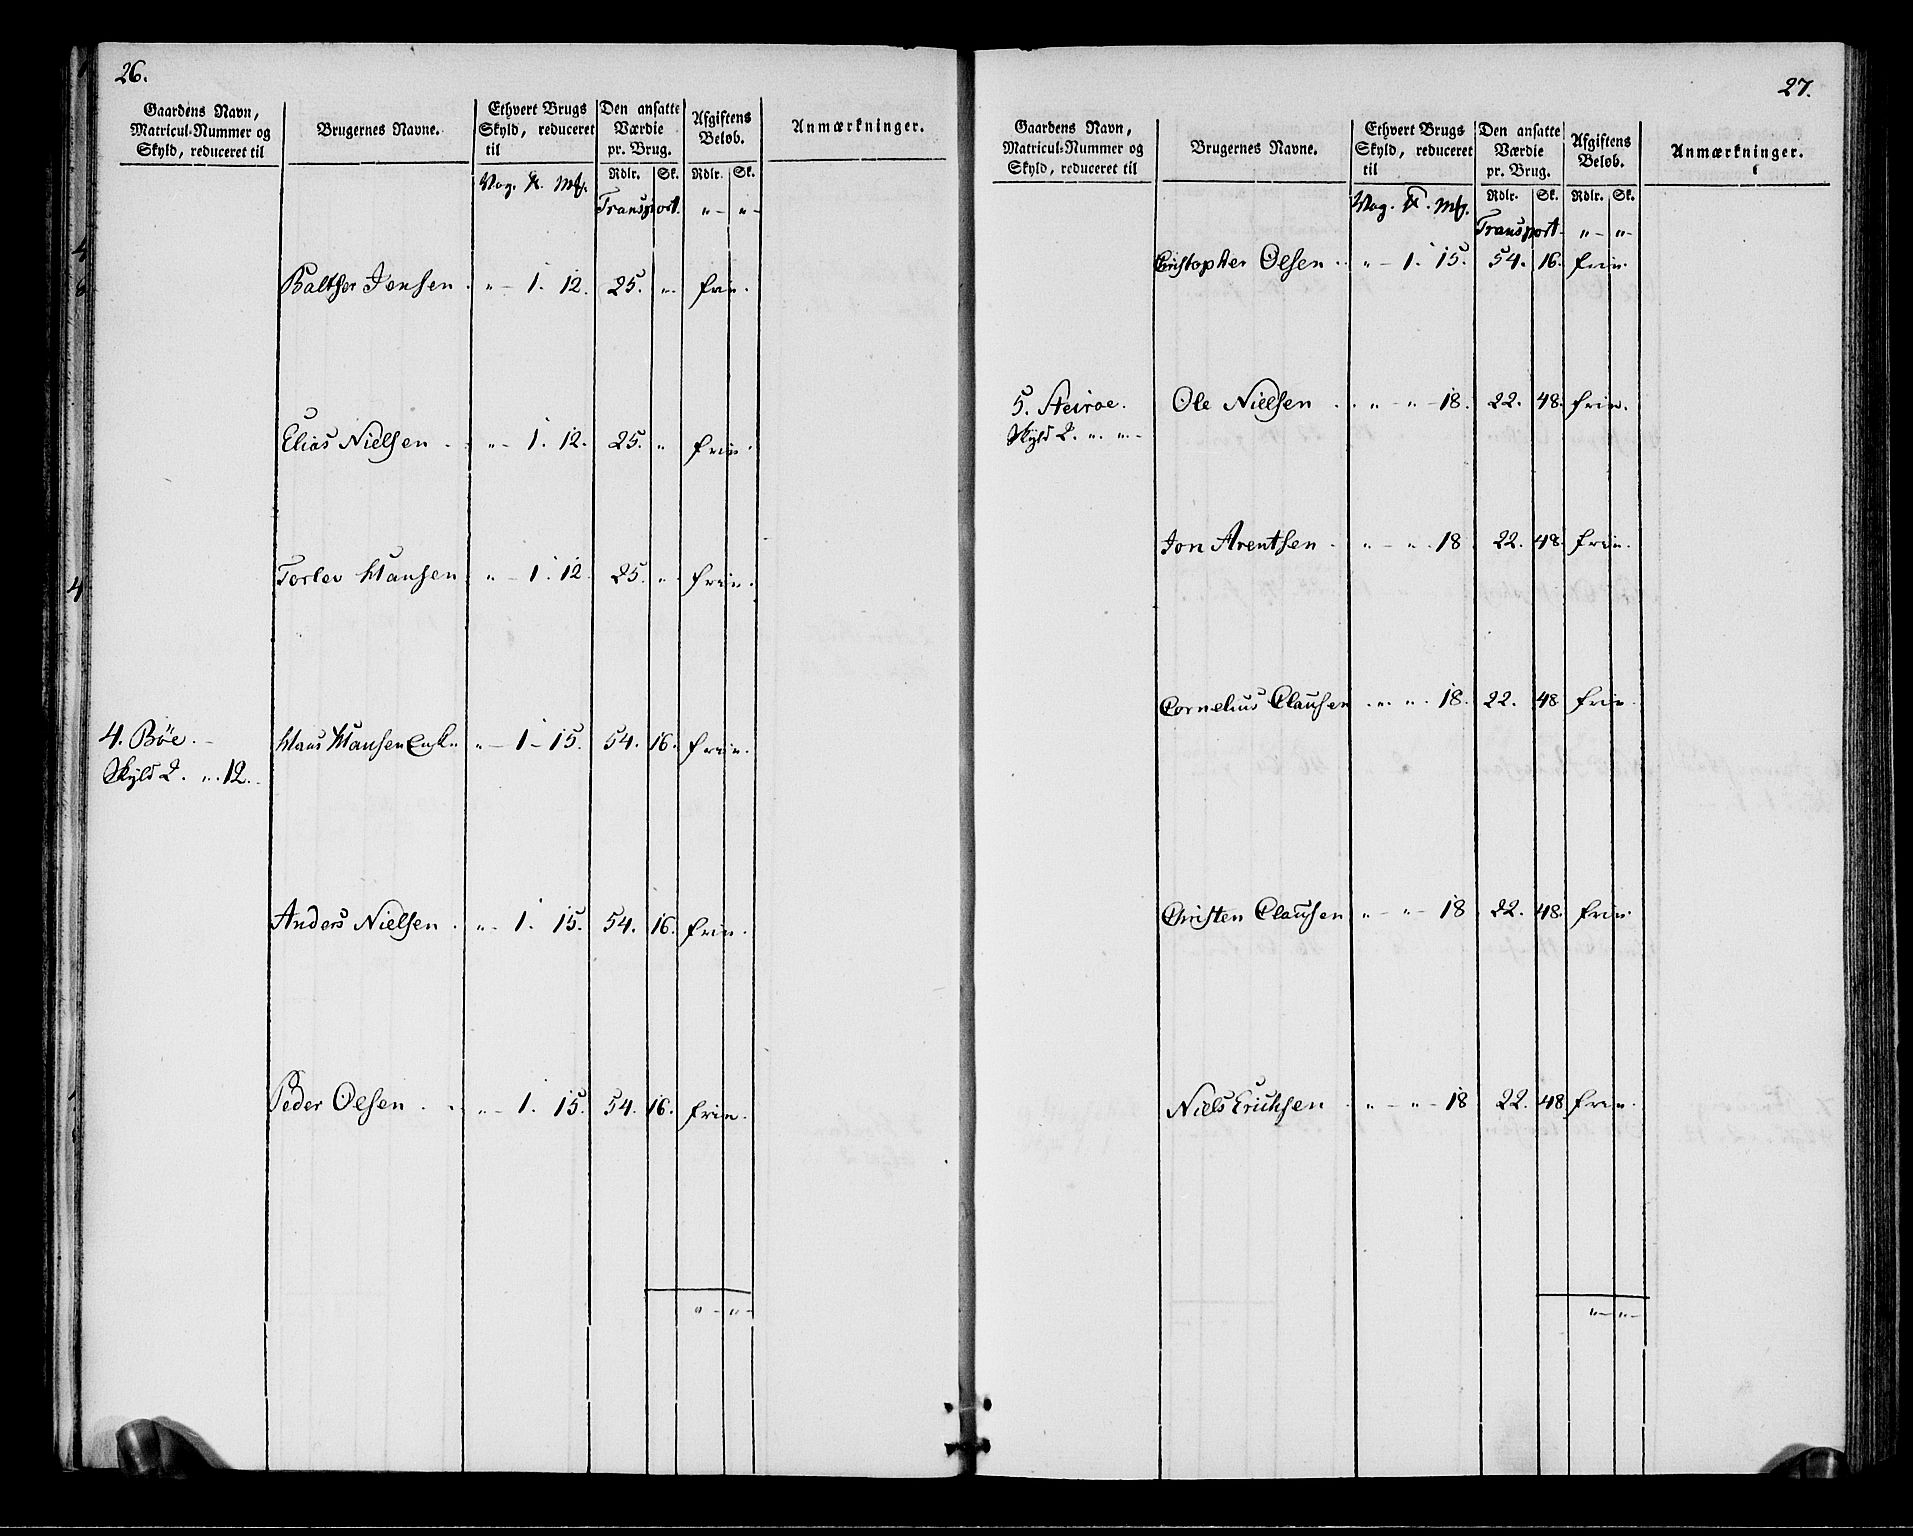 26.
Gaardens Navn, Matricul-Nummer og Skyld, reduceret til
Brugernes Navne.
Ethvert Brugs Skyld, reduceret til
Den ansatte Værdie pr. Brug.
Afgiftens Beløb.
Anmærkninger.
Rdlr. Sk. Rdlr. Sk.
Vog. Mk.
Transport. " - " -
Balther Jensen . " - 1. 12. 25. ". frie.
Elias Nielsen . . " - 1. 12. 25. " frie.
Torlev Hansen . " - 1. 12. 25. ". frie.
4. Bøe. - Hans Hansen Enk. " - 1 - 15. 54. 16. frie.
Skyld 2. ". 12.
Anders Nielsen . " - 1. 15. 54. 16. frie.
Peder Olsen . . " - 1. 15. 54. 16. frie.
" - " -
27.
Gaardens Navn, Matricul-Nummer og Skyld, reduceret til
Brugernes Navne.
Ethvert Brugs Skyld, reduceret til
Den ansatte Værdie pr. Brug.
Afgiftens Beløb.
Anmærkninger.
Rdlr. Sk. Rdlr. Sk.
Vog. Mk.
Transport " - " -
Christopher Olsen . . " - 1. 15. 54. 16. frie.
5. Steiroe. Ole Nielsen . . " - " - 18. 22. 48. frie.
Skyld 2. ". " -
Jon Arentsen . " - ". 18 22. 48. frie.
Cornelius Clausen . ". ". 18. 22. 48 frie.
Christen Clausen " - " - 18 22. 48. frie.
Niels Erichsen . " - " - 18 22. 48 frie.
" - " -